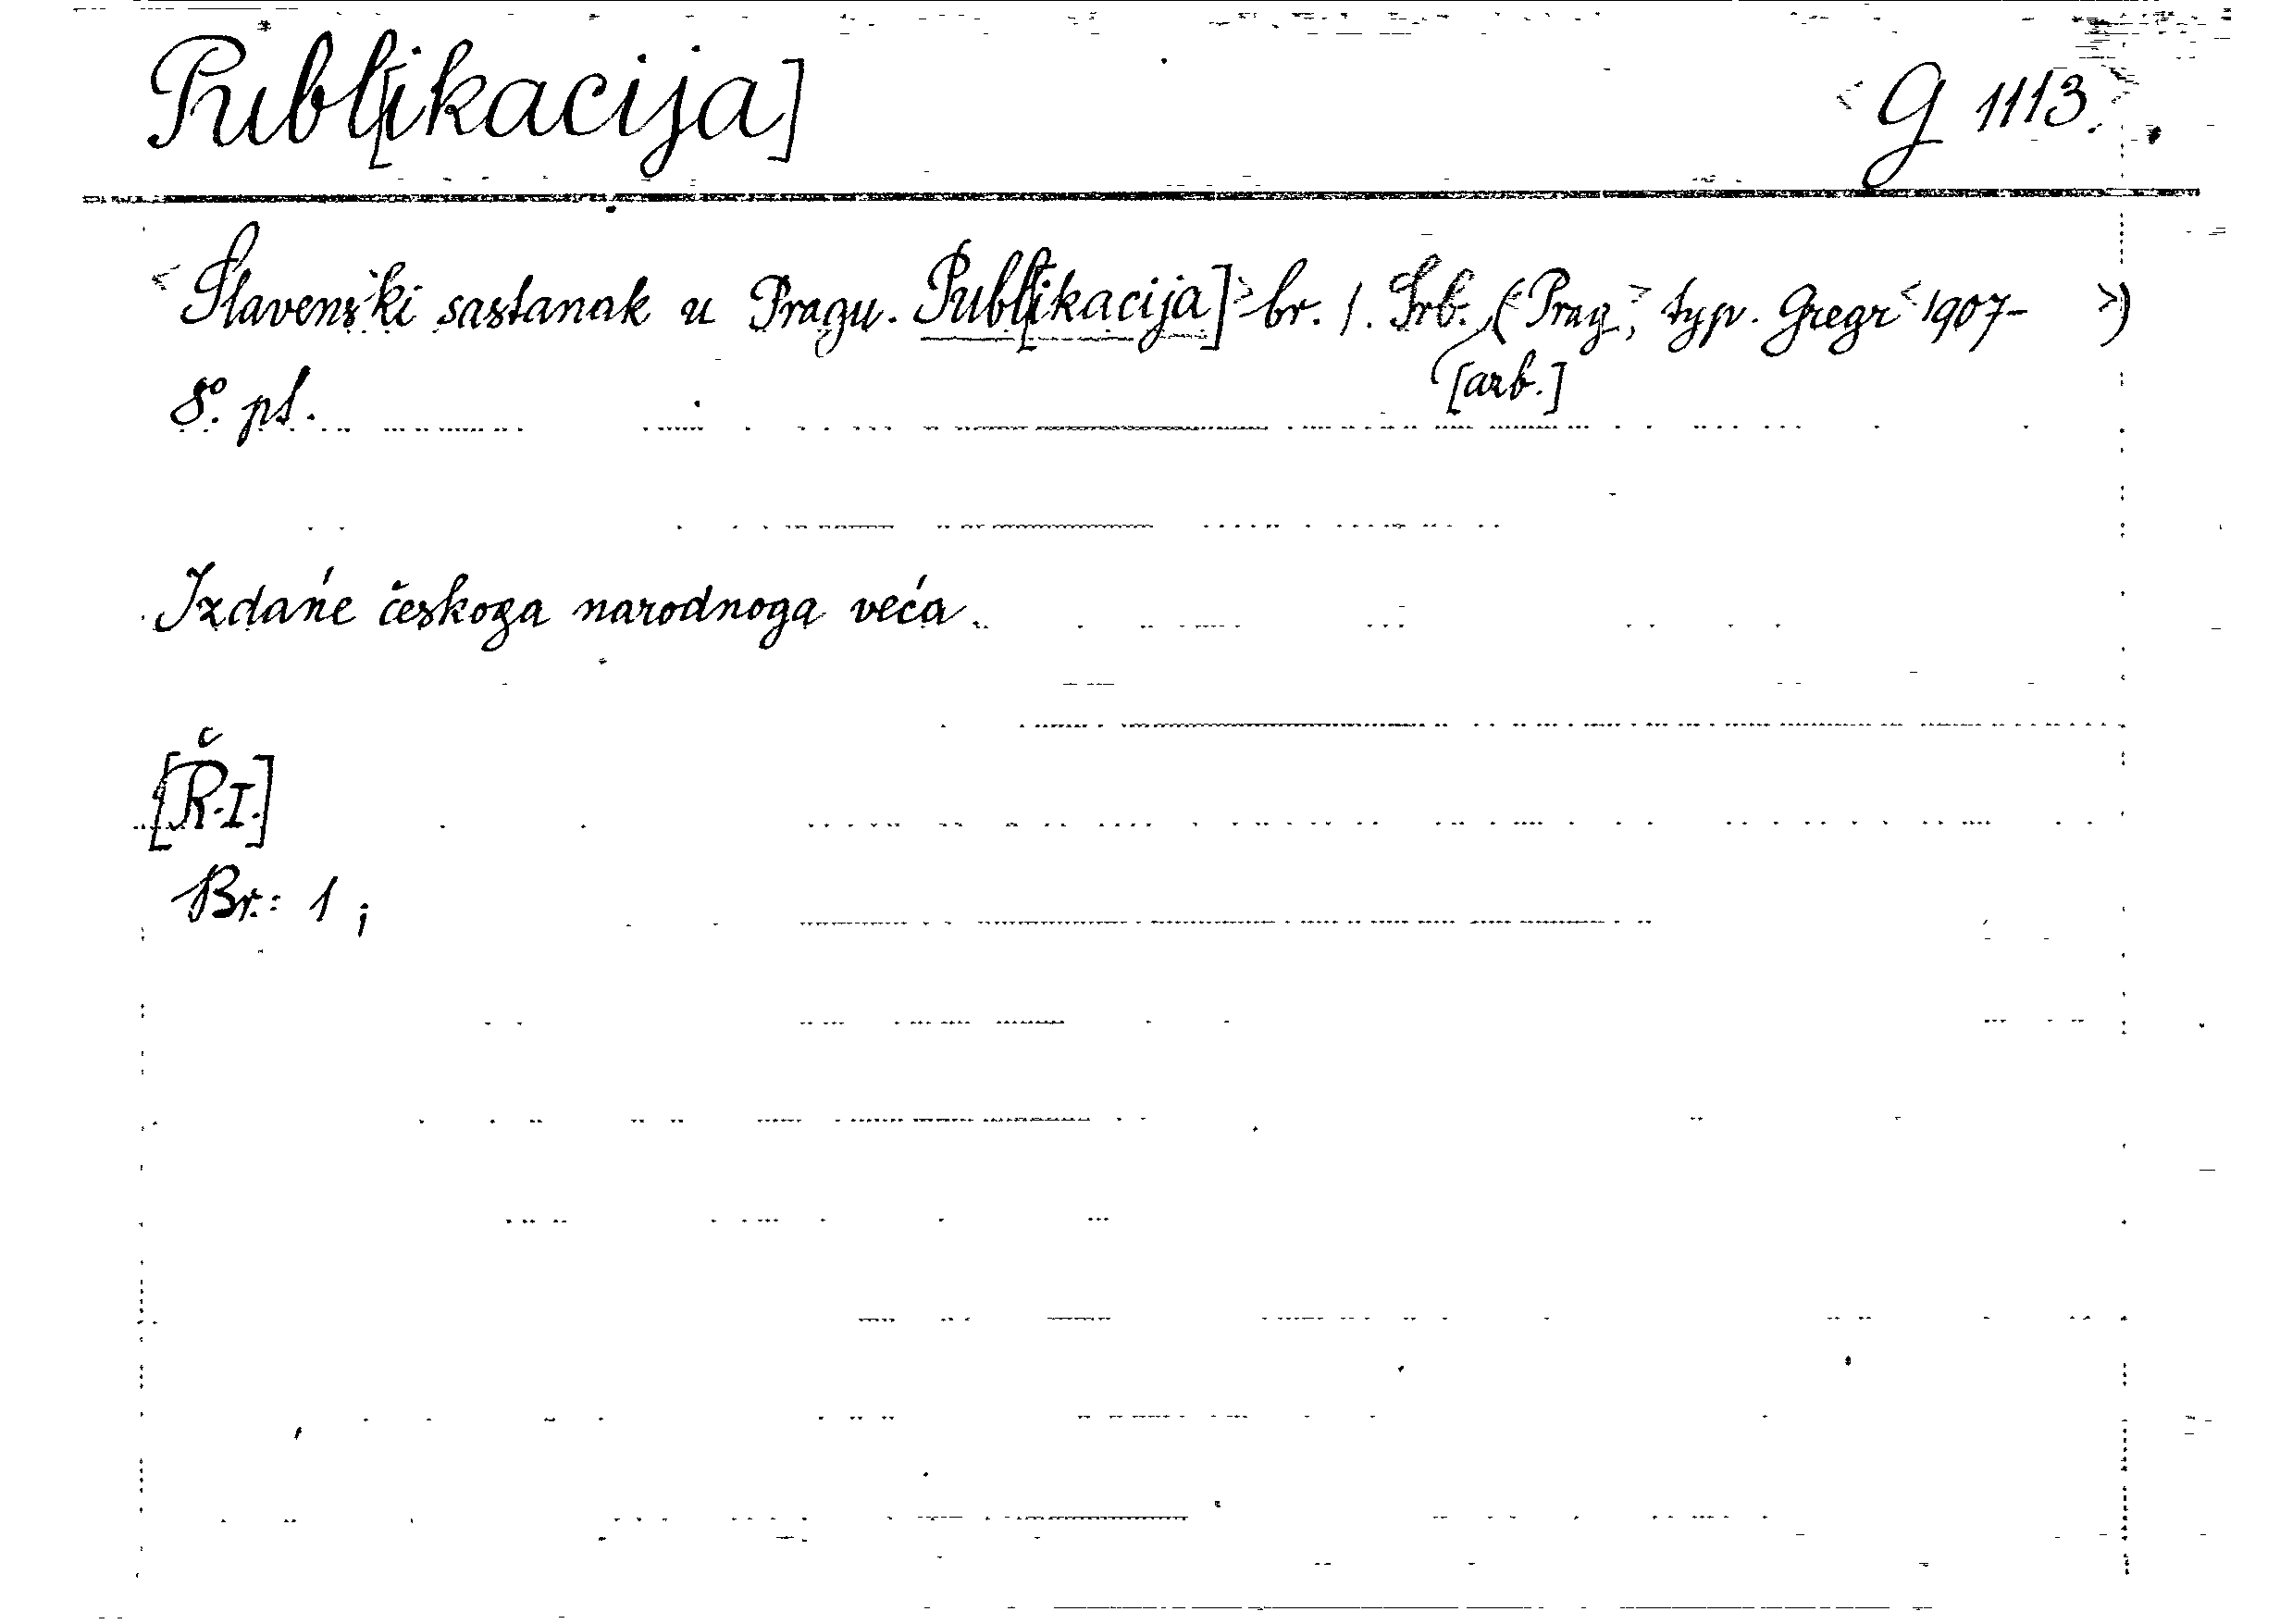 Publ[ikacija] <G 1113.
<Slavenski sastanak u Pragu. Publ[ikacija]> br. 1. Srb. (<Prag>, typ. Gregr <1907- >)
[arb.]
8º. pl.
Izdańe českoga narodnoga veća
[Ř.I.]
Br.: 1 ;